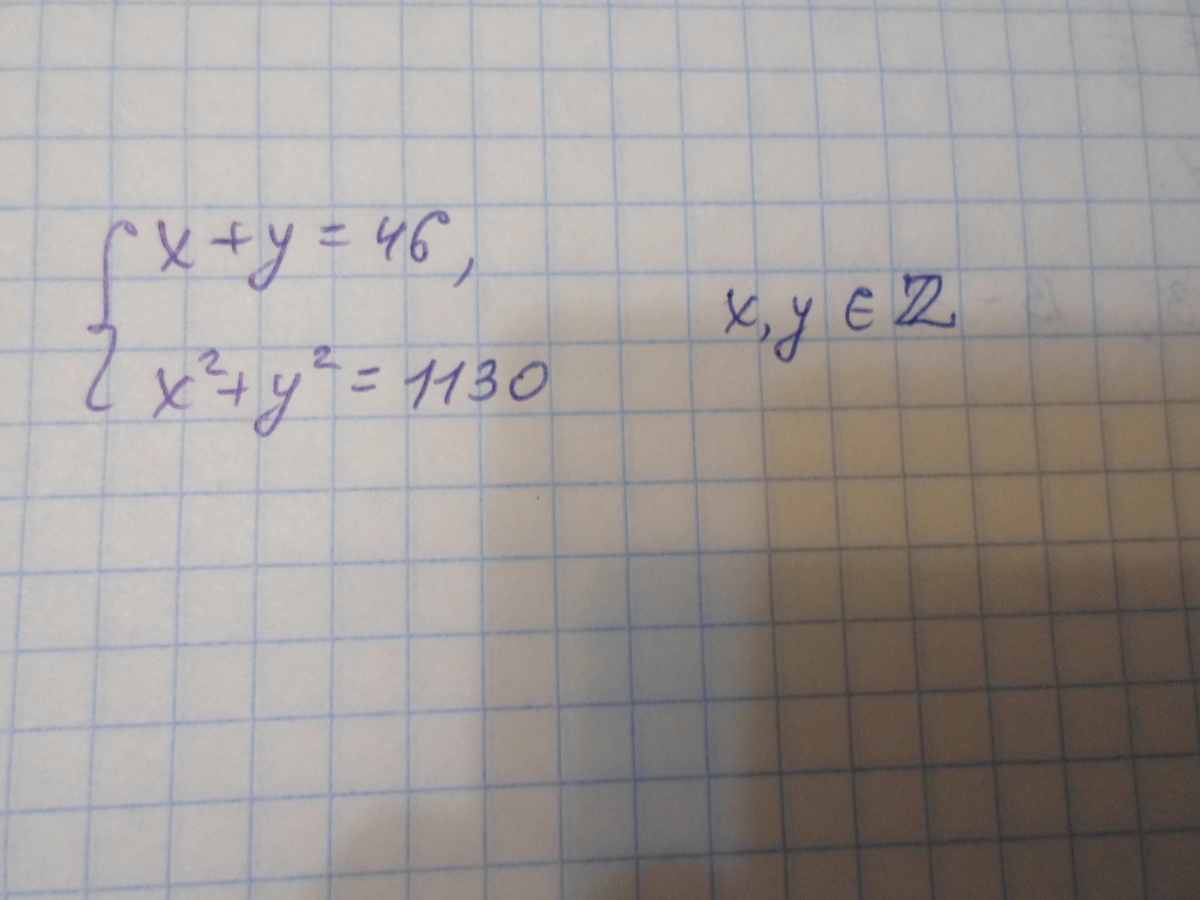 x + y = 46,
x² + y² = 1130
x, y ∈ ℤ